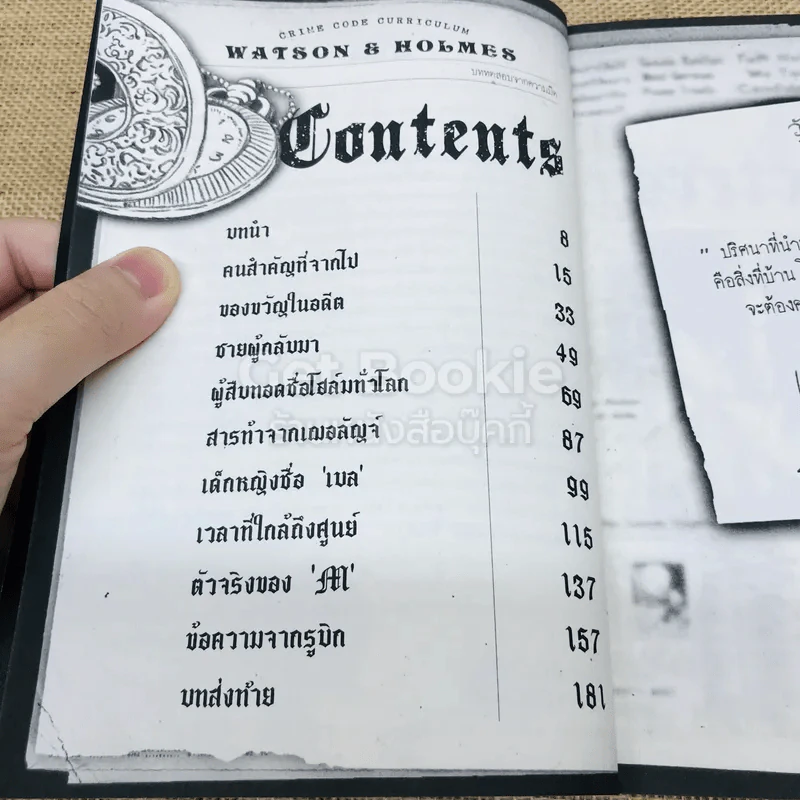 CRIME CODE CURRICULUM
WATSON & HOLMES
บททดสอบจากความมืด
Contents
บทนำ 8
คนสำคัญที่จากไป 15
ของขวัญในอดีต 33
ชายผู้กลับมา 49
ผู้สืบทอดชื่อโฮล์มทั่วโลก 69
สารท้าจากเฌอลัญจ์ 87
เด็กหญิงชื่อ 'เบล' 99
เวลาที่ใกล้ถึงศูนย์ 115
ตัวจริงของ 'M' 137
ข้อความจากรูบิก 157
บทส่งท้าย 181
Get Bookie
ร้านหนังสือบุ๊คกี้
" ปริศนาที่นำ
คือสิ่งที่บ้าน
จะต้อง